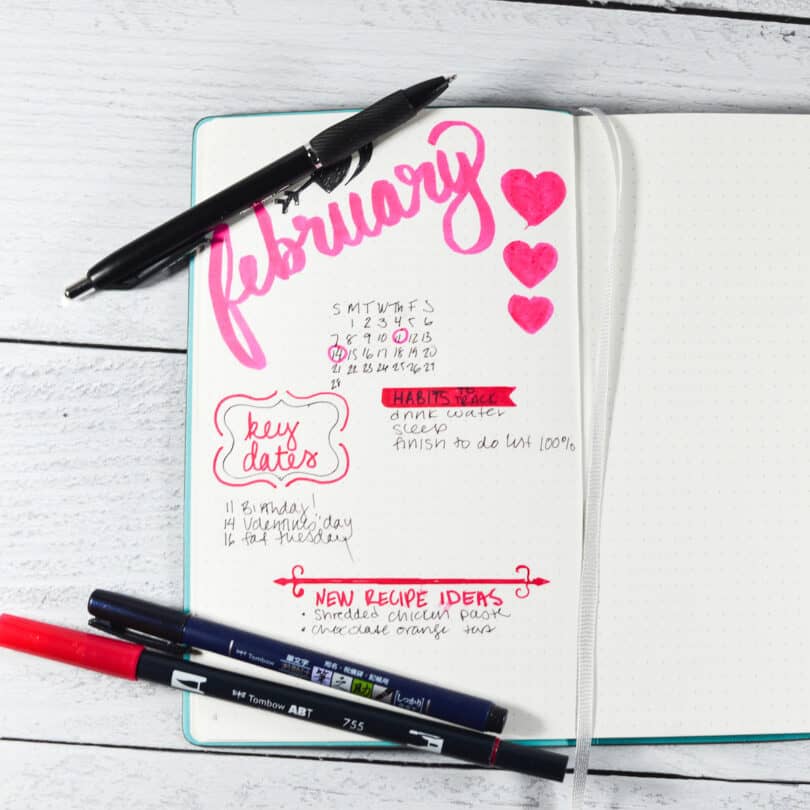 february
S M T W Th F S
1 2 3 4 5 6
7 8 9 10 11 12 13
14 15 16 17 18 19 20
21 22 23 24 25 26 27
28
HABITS TO TRACK
drink water
sleep
finish to do list 100%
key
dates
11 Birthday!
14 Valentines' day
16 fat tuesday
NEW RECIPE IDEAS
• shredded chicken paste
• chocolate orange tart
Tombow
筆文字
しっかり
Tombow ABT 755